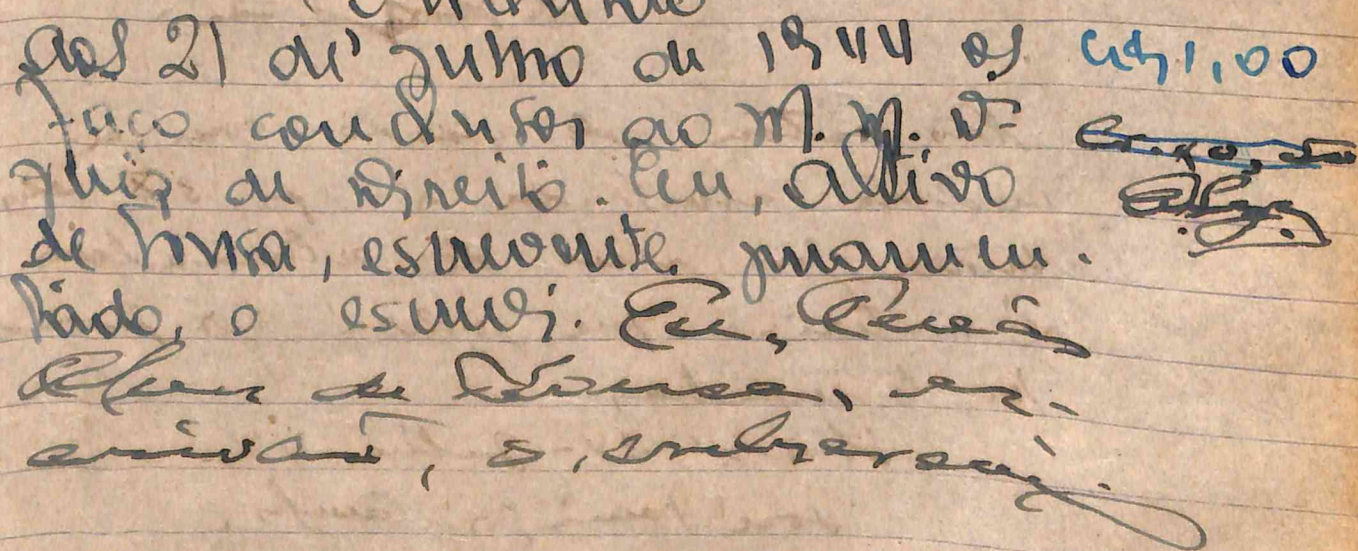 aos 21 de junho de 1944 os
faço conclusos ao M. M. Dr
Juiz de Direito. Eu, Altivo
de Sousa, escrevente juramen.
tado, o escrevi. Eu,
Alves de Sousa, es-
crivão, o subscrevi.
1,00